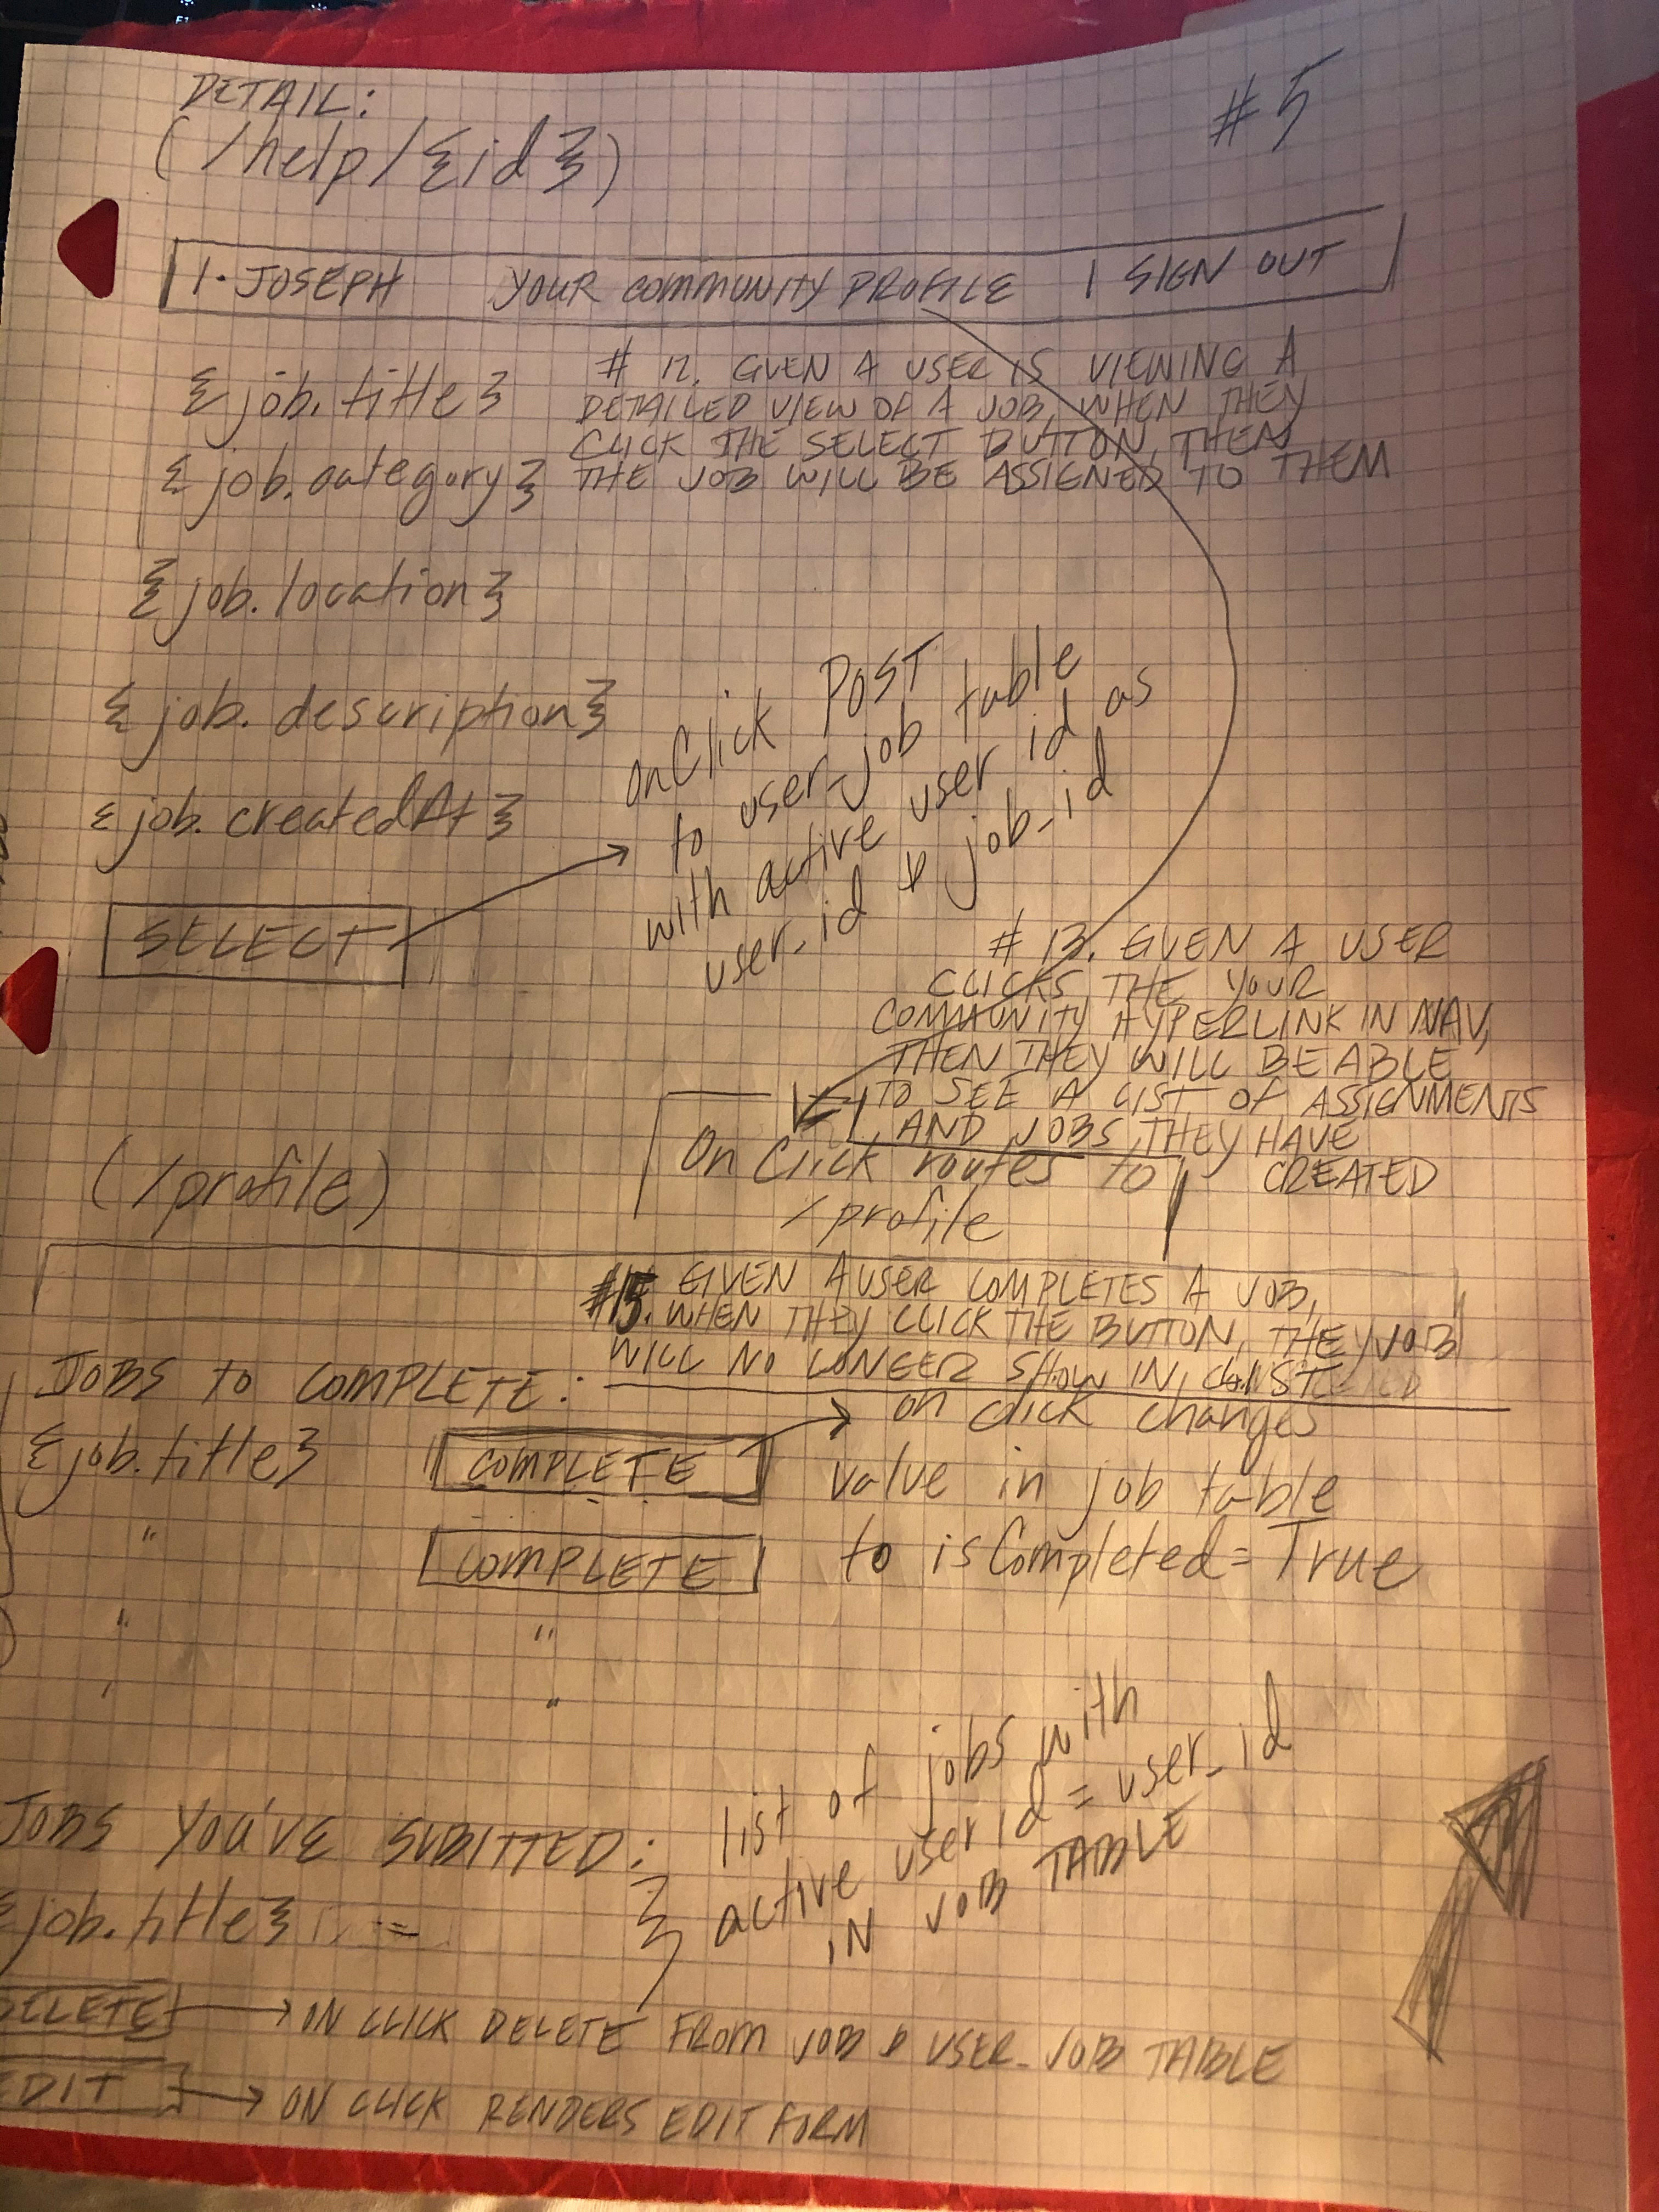 DETAIL:
#5
(/help/{id})
1. JOSEPH YOUR COMMUNITY PROFILE | SIGN OUT
{job.title}
# 12. GIVEN A USER IS VIEWING A
DETAILED VIEW OF A JOB, WHEN THEY
CLICK THE SELECT BUTTON, THEN
THE JOB WILL BE ASSIGNED TO THEM
{job.category}
{job.location}
{job.description}
{job.createdAt}
SELECT
onClick POST
to user_job table
with active user id as
user_id & job_id
# 13. GIVEN A USER
CLICKS THE YOUR
COMMUNITY HYPERLINK IN NAV,
THEN THEY WILL BE ABLE
TO SEE A LIST OF ASSIGNMENTS
AND JOBS THEY HAVE
CREATED
On Click routes to
/profile
(/profile)
#15. GIVEN A USER COMPLETES A JOB,
WHEN THEY CLICK THE BUTTON, THEY JOB
WILL NO LONGER SHOW IN LIST
JOBS TO COMPLETE:
{job.title} COMPLETE
on click changes
value in job table
to isCompleted = True
" COMPLETE
" "
" "
JOBS YOU'VE SUBITTED:
{job.title}
list of jobs with
active user id = user_id
IN JOB TABLE
DELETE → ON CLICK DELETE FROM JOB & USER_JOB TABLE
EDIT → ON CLICK RENDERS EDIT FORM